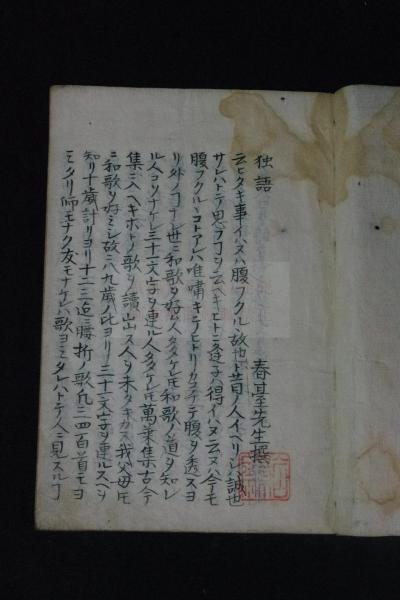 独語
春臺先生撰
云ヒタキ事イハ子ハ腹フクルヽ故也ト昔ノ人イヘリシハ誠也
サレハトテ思フヿヲ云ヘキヒトニ逢子ハ得イハヌ云ヌハ今モ
腹フクルヽコトアレハ唯嘯キテヒトリカタリテ腹ヲ透スヨ
リ外ノヿナシ世ニ和歌ヲ好ム人多ケレ𪜈和歌ノ道ヲ知レ
ル人コソナケレ三十一文字ヲ連ル人多ケレ𪜈萬葉集古今
集ニ入ヘキホトノ歌ヲ讀出ス人ヲ未タキカス我父母𪜈
ニ和歌ヲ好ミシ故ニ八九歳ノ比ヨリ三十一文字ヲ連ルスヘヲ
知リ十歳計リヨリ十二三迄ニ腰折歌凡三四百首モヨ
ミタリ師モナク友モナケレハ歌ヨミタレハトテ人ニ見スルヿ